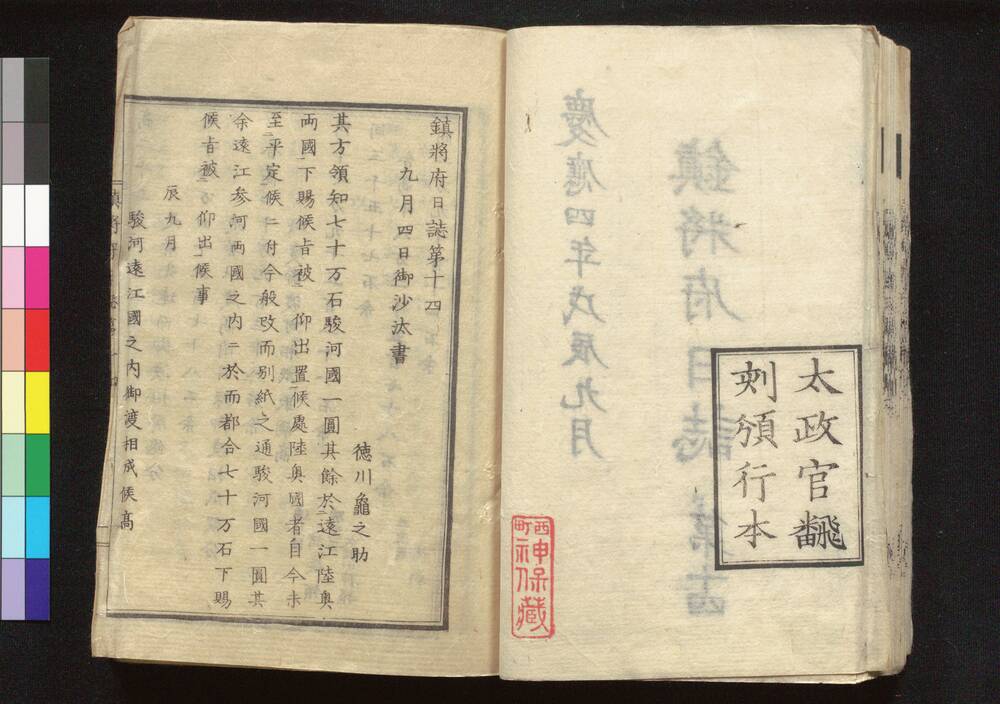 太政官飜
刻頒行本
鎮將府日誌 第十四
慶應四年戊辰九月
西町
神保藏
鎮將府日誌第十四
九月四日御沙汰書
徳川龜之助
其方領知七十万石駿河國一圓其餘於遠江陸奥
両國下賜候旨被 仰出置候處陸奥國者自今未
至平定候ニ付今般改而別紙之通駿河國一圓其
余遠江参河両國之内ニ於而都合七十万石下賜
候旨被 仰出候事
辰九月
駿河遠江國之内御渡相成候髙